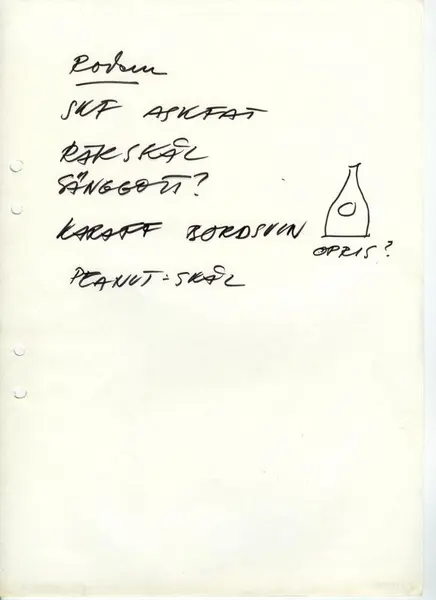 SKF ASKFAT
RÄKSKÅL
SÄNGGOTT?
KARAFF BORDSVIN
OPRIS?
PEANUT-SKÅL